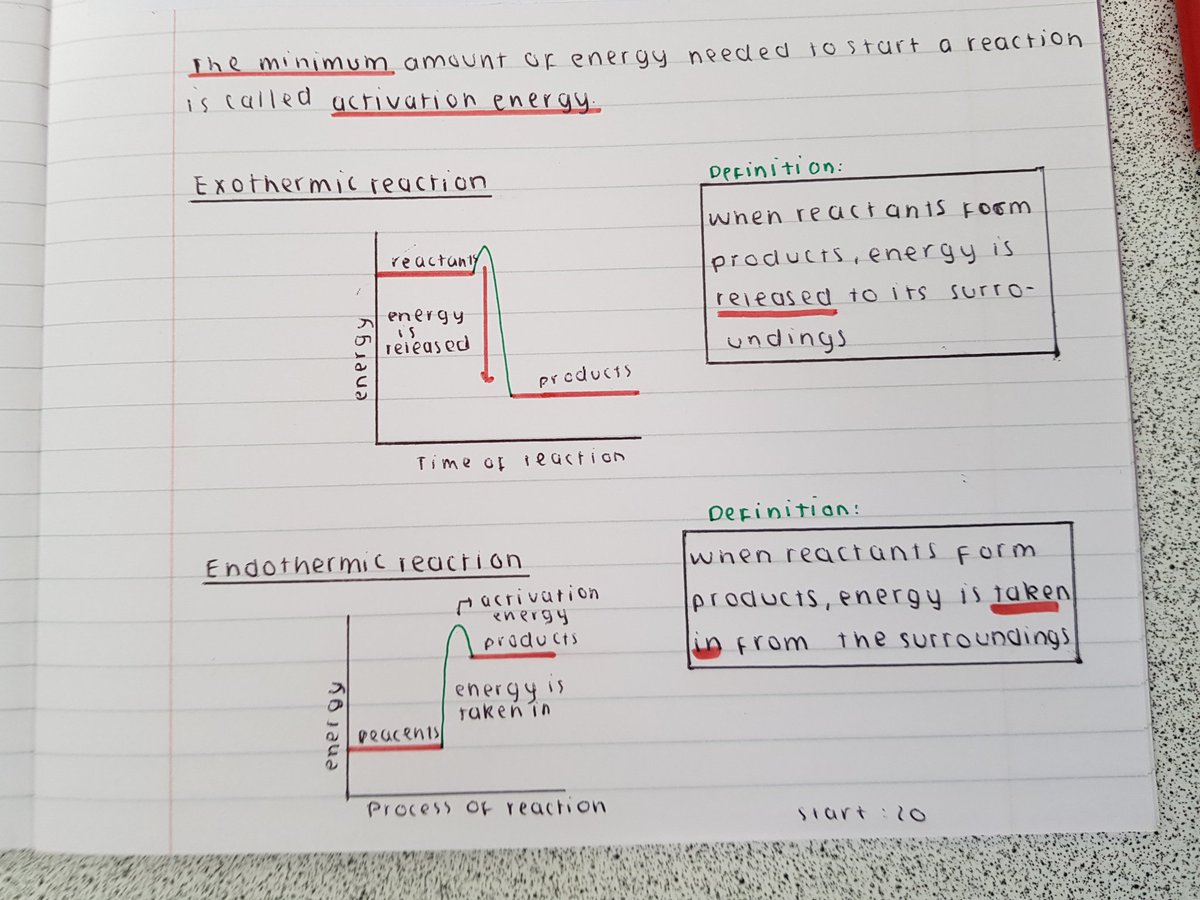 The minimum amount of energy needed to start a reaction
is called activation energy.
Exothermic reaction
Definition:
when reactants form
products, energy is
released to its surro-
undings
reactants
energy
is
released
products
energy
Time of reaction
Endothermic reaction
Definition:
when reactants form
products, energy is taken
in from the surroundings
activation
energy
products
energy is
taken in
reacents
energy
Process of reaction
start: 20